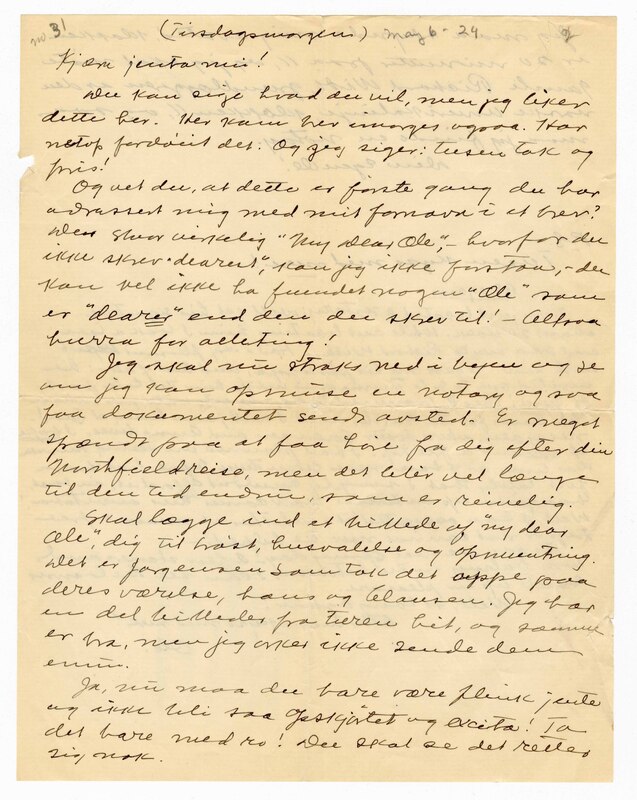 no 3! (Tirsdagsmorgen) May 6 - 24
Kjære jenta mi!
Du kan sige hvad du vil, men jeg liker
dette her. Her kom her imorges ogsaa. Har
netop fordöiet det. Og jeg siger: tusen tak og
pris!
Og vet du, at dette er förste gang du har
adrassert mig med mit fornavn i et brev?
Der staar virkelig "My Dear Ole", - hvorfor du
ikke skrev "dearest", kan jeg ikke forstaa, - du
kan vel ikke ha fundet nogen "Ole" som
er "dearer" end den du skrev til! - Altsaa
hurra for alleting!
Jeg skal nu straks ned i byen og se
om jeg kan opsnuse en notary og saa
faa dokumentet sendt avsted. Er meget
spændt paa at faa höre fra dig efter din
Northfieldreise, men det blir vel længe
til den tid endnu, som er rimelig.
Skal lægge ind et billede af "my dear
Ole", dig til tröst, husvalelse og opmuntring.
Det er Jorgensen som tok det oppe paa
deres værelse, hans og Clausen. Jeg har
en del billeder fra turen hit, og somme
er bra, men jeg orker ikke sende dem
ennu.
Ja, nu maa du bare være flink jente
og ikke bli saa opskjörtet og excita! Ta
det bare med ro! Du skal se det retter
sig nok.